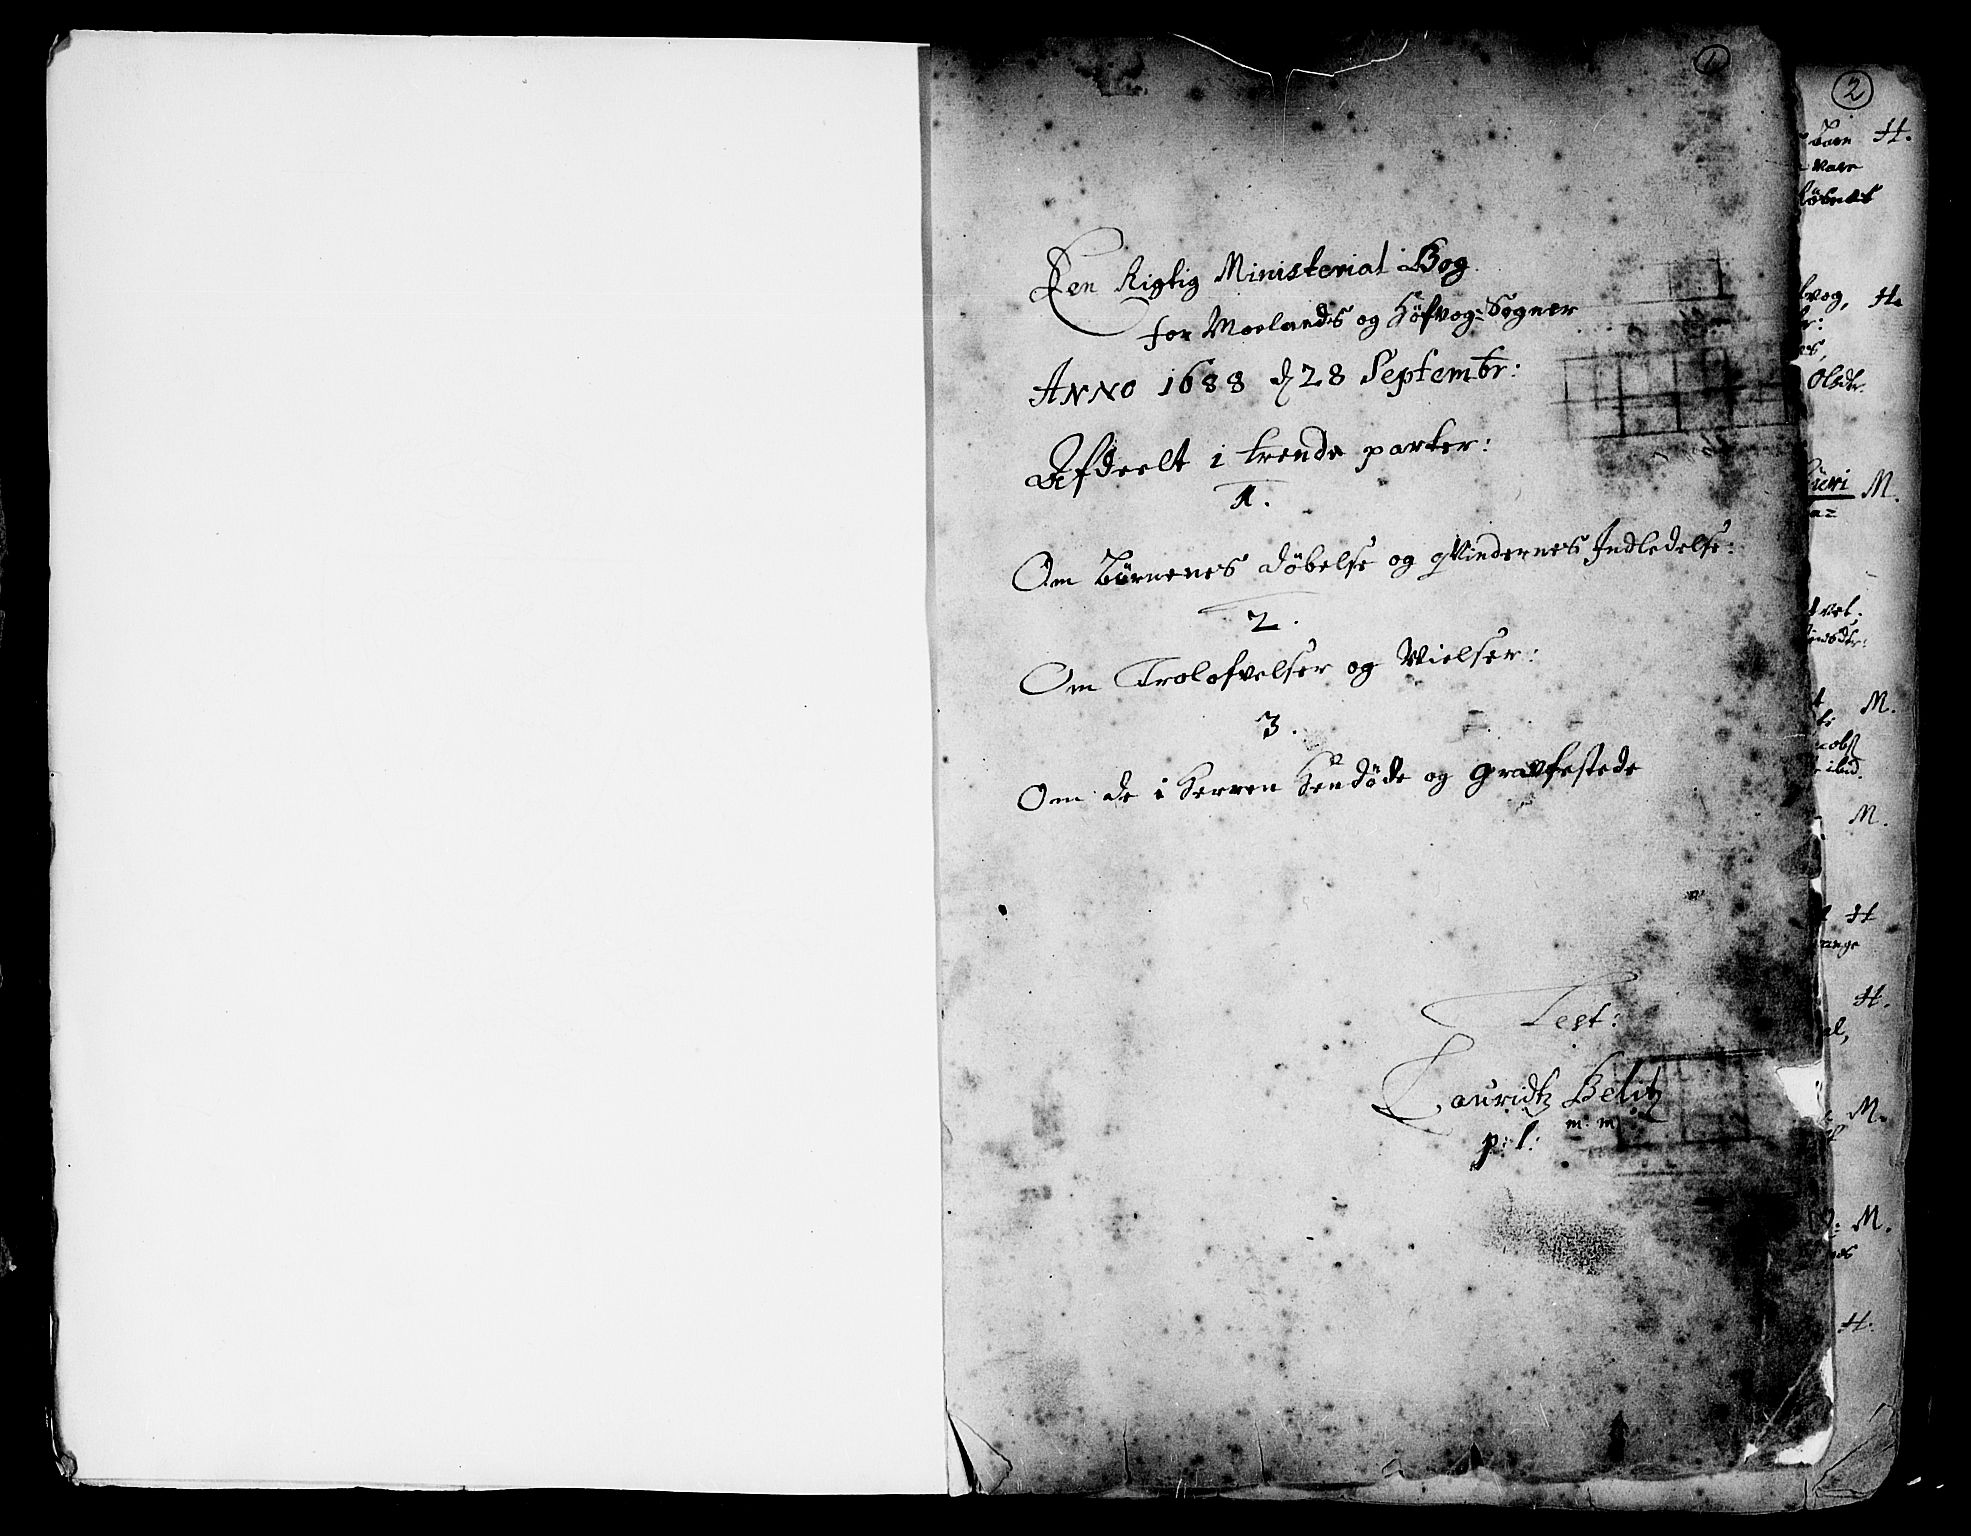 1
Een Rigtig Ministerial Bog
for Moelands og Høfvog-Sogner
ANNO 1688 d 28 Septembr:
Afdeelt i trende parter:
1.
Om Børnenes Døbelse og qvindernes Indledelse:
2.
Om Trolofvelser og Vielser:
3.
Om de i Herren Hendøde og Gravfestede
Test:
Lauridtz Belitz
m: m
p: l:
2
H.
vare
H.
Olsdtr.
M.
M.
ibid.
M.
H
H.
M.
M.
H.